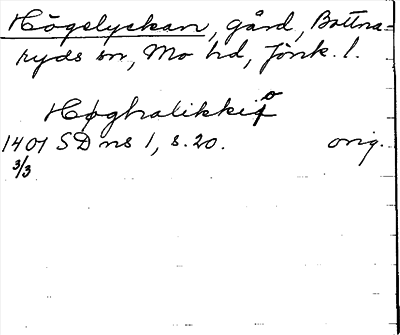 Högslyckan, gård, Bottna-
ryds sn, Mo hd, Jönk. l.
Høghalikkio
1401 SD ns 1, s. 20. orig.
3/3